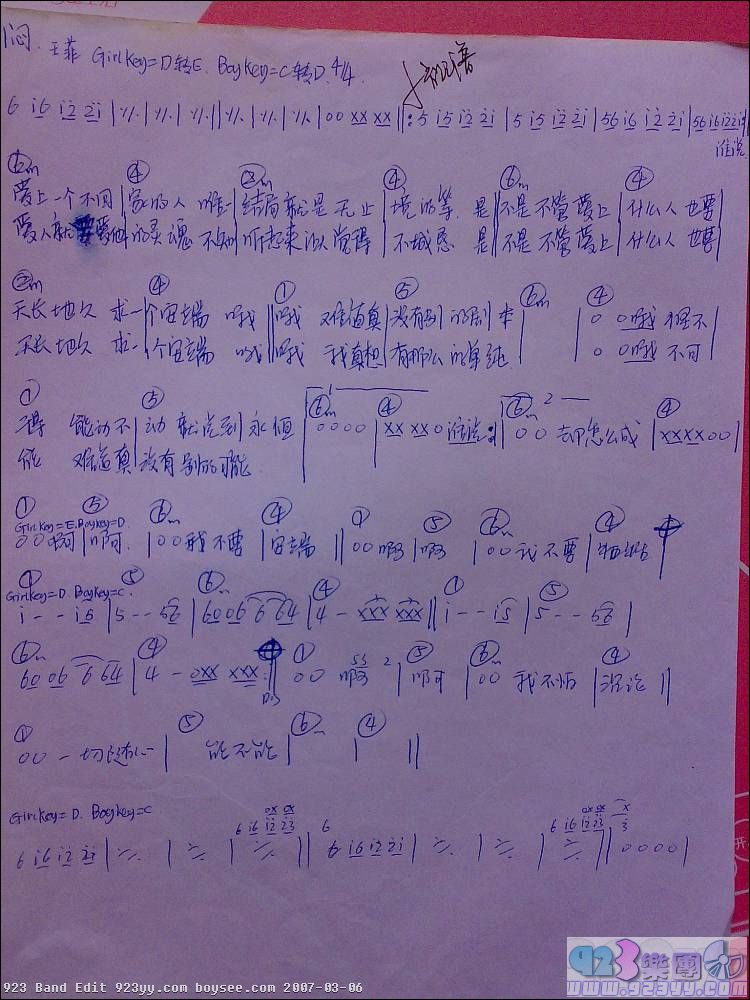 闷. 王菲 Girl Key=D转E. Boy Key=C转D. 4/4.
6 i6 i2 2i |·/.|·/.|·/.|·/.|·/.|·/.| 00 xx xx ‖: 5 i5 i2 2i | 5 i5 i2 2i | 56 i6 i2 2i | 56 i6 i2 2i
谁说
⑥m ④ ②m ④ ⑥m ④
爱上一个不回|家的人 唯一|结局就是无止|境的等. 是|不是不管爱上|什么人 也要|
爱人就要爱他|的灵魂 不知|听起来 让人觉得|不城恳 是|不是不管爱上|什么人 也要|
②m ④ ① ⑤ ⑥m ④
天长地久 求一|个安端 哦‖哦 难道真|没有别的剧本| |00哦 怪不|
天长地久 求一|个安端 哦‖哦 我真想|有那么的单纯| |00哦 不可|
① ⑤ 1 ⑥m ④ 2 ⑥m ④
得 能动不|动 就说到永恒|0000|xx xx 0 谁说:‖00 却怎么成|xxxx00|
能 难道真|没有别的可能
① ⑤ ⑥m ④ ① ⑤ ⑥m ④
Girl Key=E. Boy Key=D.
00啊|啊.|00我不要|安端‖00啊|啊|00我不要|牺牲
① ⑤ ⑥m ④ ① ⑤
Girl Key=D. Boy Key=C.
i - - i5 |5 - - 56 |6006 6 64 |4 - xxx xxx‖i - - i5 |5 - - 56 |
⑥m ④ ① ⑤ ⑥m ④
60 06 6 64 |4 - 0xx xxx :‖ 00 啊 |啊 |00 我不怕 |沉沦 ‖
D.S
① ⑤ ⑥m ④
00 一切随心 | 能不能 | | ‖
Girl Key=D. Boy Key=C
6 i6 i2 2i |·/.|·/.|·/.‖6 i6 i2 2i |·/.|·/.|·/.‖0000|
923樂團
www.923yy.com
923 Band Edit 923yy.com boysee.com 2007-03-06